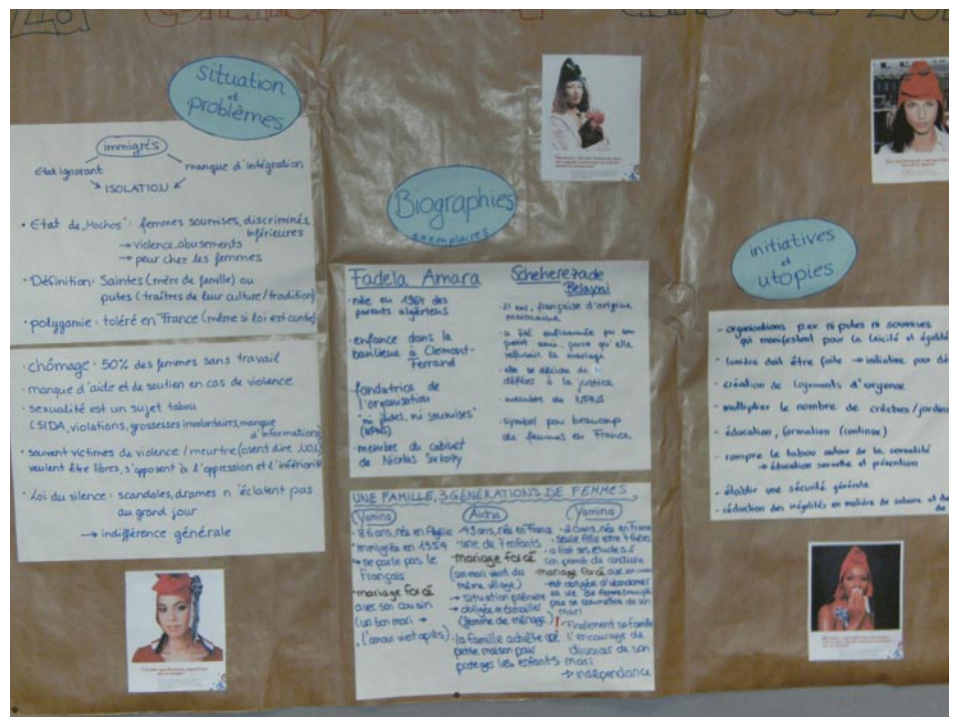 situation
et
problèmes
immigrés
état ignorant
manque d'intégration
ISOLATION
• Etat de „Machos": femmes soumises, discriminées,
inférieures
→ violence, abusements
→ peur chez les femmes
• Définition: Saintes (mère de famille) ou
putes (traîtres de leur culture/tradition)
• polygamie: toléré en France (même si loi est contre)
• chômage: 50% des femmes sans travail
• manque d'aide et de soutien en cas de violence
• sexualité est un sujet tabou
(SIDA, violations, grossesses involontaires, manque
d'informations)
• souvent victimes de violence / meurtre (osent dire NON,
veulent être libres, s'opposent à l'oppression et l'infériorité
• Loi du silence: scandales, drames n'éclatent pas
au grand jour
→ indifférence générale
Biographies
exemplaires
Fadela Amara
• née en 1964 des
parents algériens
• enfance dans la
banlieue à Clemont-
Ferrand
• fondatrice de
l'organisation
"ni putes, ni soumises"
(NPNS)
• membre du cabinet
de Nicolas Sarkozy
Scheherezade
Belayni
• 21 ans, française d'origine
marocaine
• a été par son
petit ami, parce qu'elle
refusait le mariage
• elle se décida de
à la justice
• membre de NPNS
• symbol pou beaucoup
de femmes en France
UNE FAMILLE, 3 GÉNÉRATIONS DE FEMMES
Yamina
• 86 ans, née en Algérie
• immigrée en 1954
→ ne parle pas le
français
• mariage forcé
avec son cousin
(un bon mari →
l'amour vient après)
Aicha
• 49 ans, née en France
• une de 7 enfants
• mariage forcé
(son mari vient du
même village)
→ situation précaire
→ obligée de travailler
(femme de ménage)
• la famille achète une
petite maison pour
proteger les enfants
Yamina
• 20 ans, née en France
• seule fille entre 7 frères
• a fait ses études et
son permis de conduire
• mariage forcé avec son
→ est obligée d'abandonner
sa vie de femme
pour se soumettre de son
mari
! Finalement sa famille
l'encourage de
divorcer de son
mari
→ indépendance
initiatives
et
utopies
- organisations p.ex. ni putes ni soumises
qui manifestent pour la laicité et égalité
- lumière doit être faite → initiative pour dé
- création de logements d'urgence
- multiplier le nombre de crèches / jardins
- éducation, formation (continue)
- rompre le tabou autour de la sexualité
→ éducation sexuelle et prévention
- établir une sécurité générale
- réduction des inégalités en matière de salaire et de
de